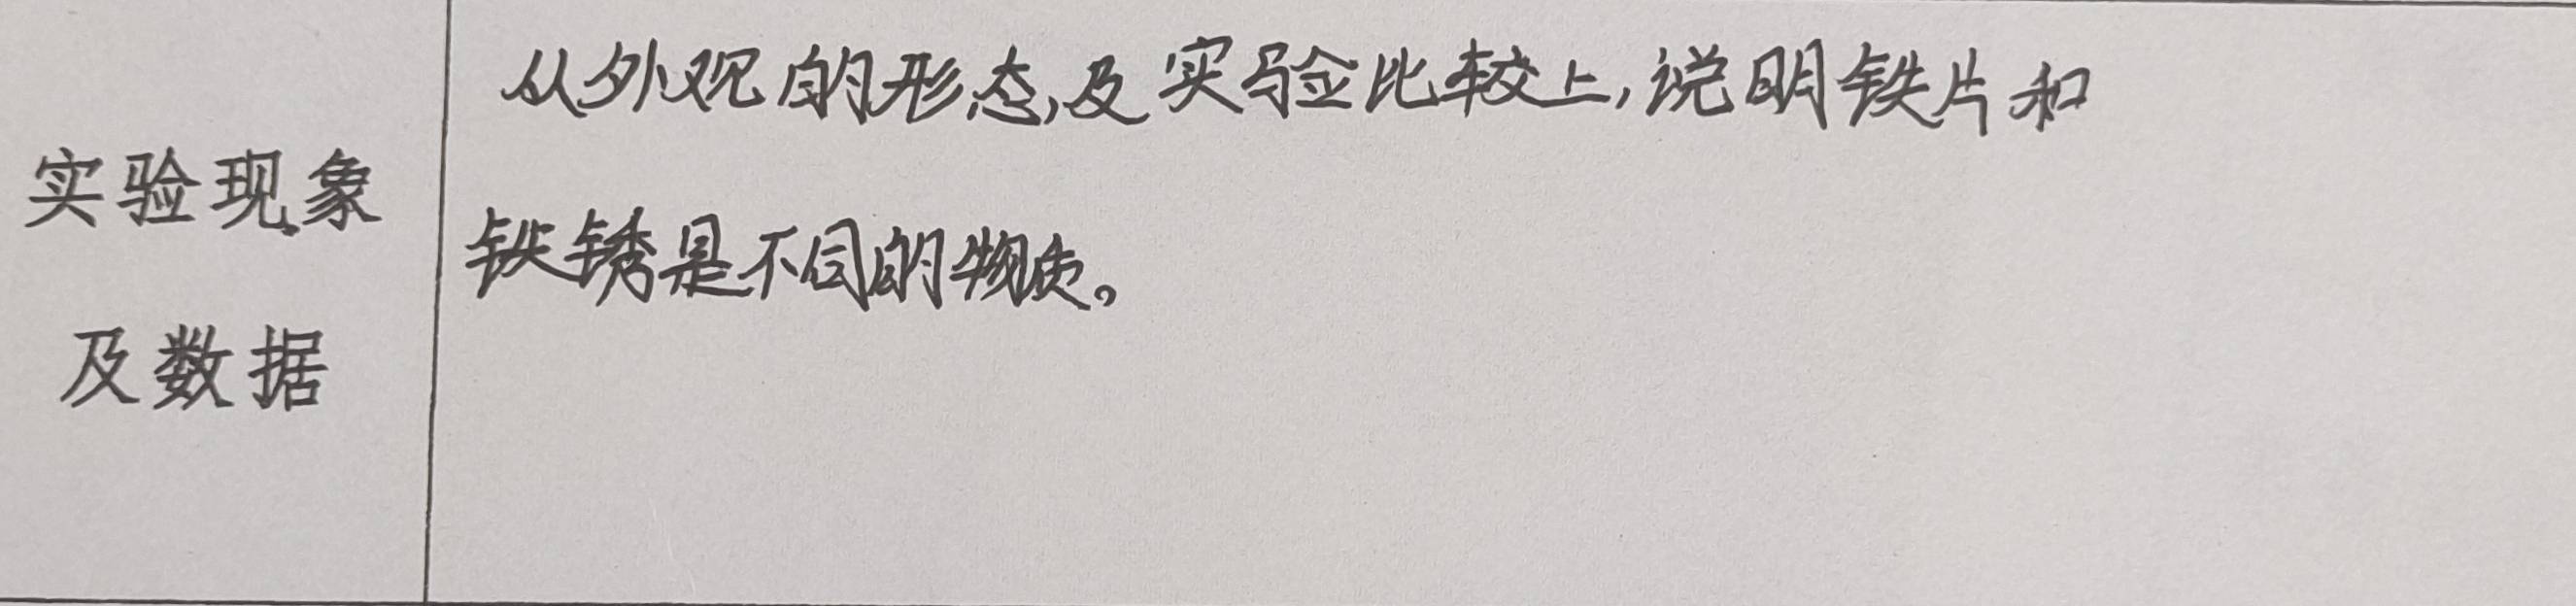 从外观的形态,及实验比较上,说明铁片和
实验现象
铁锈是不同的物质。
及数据